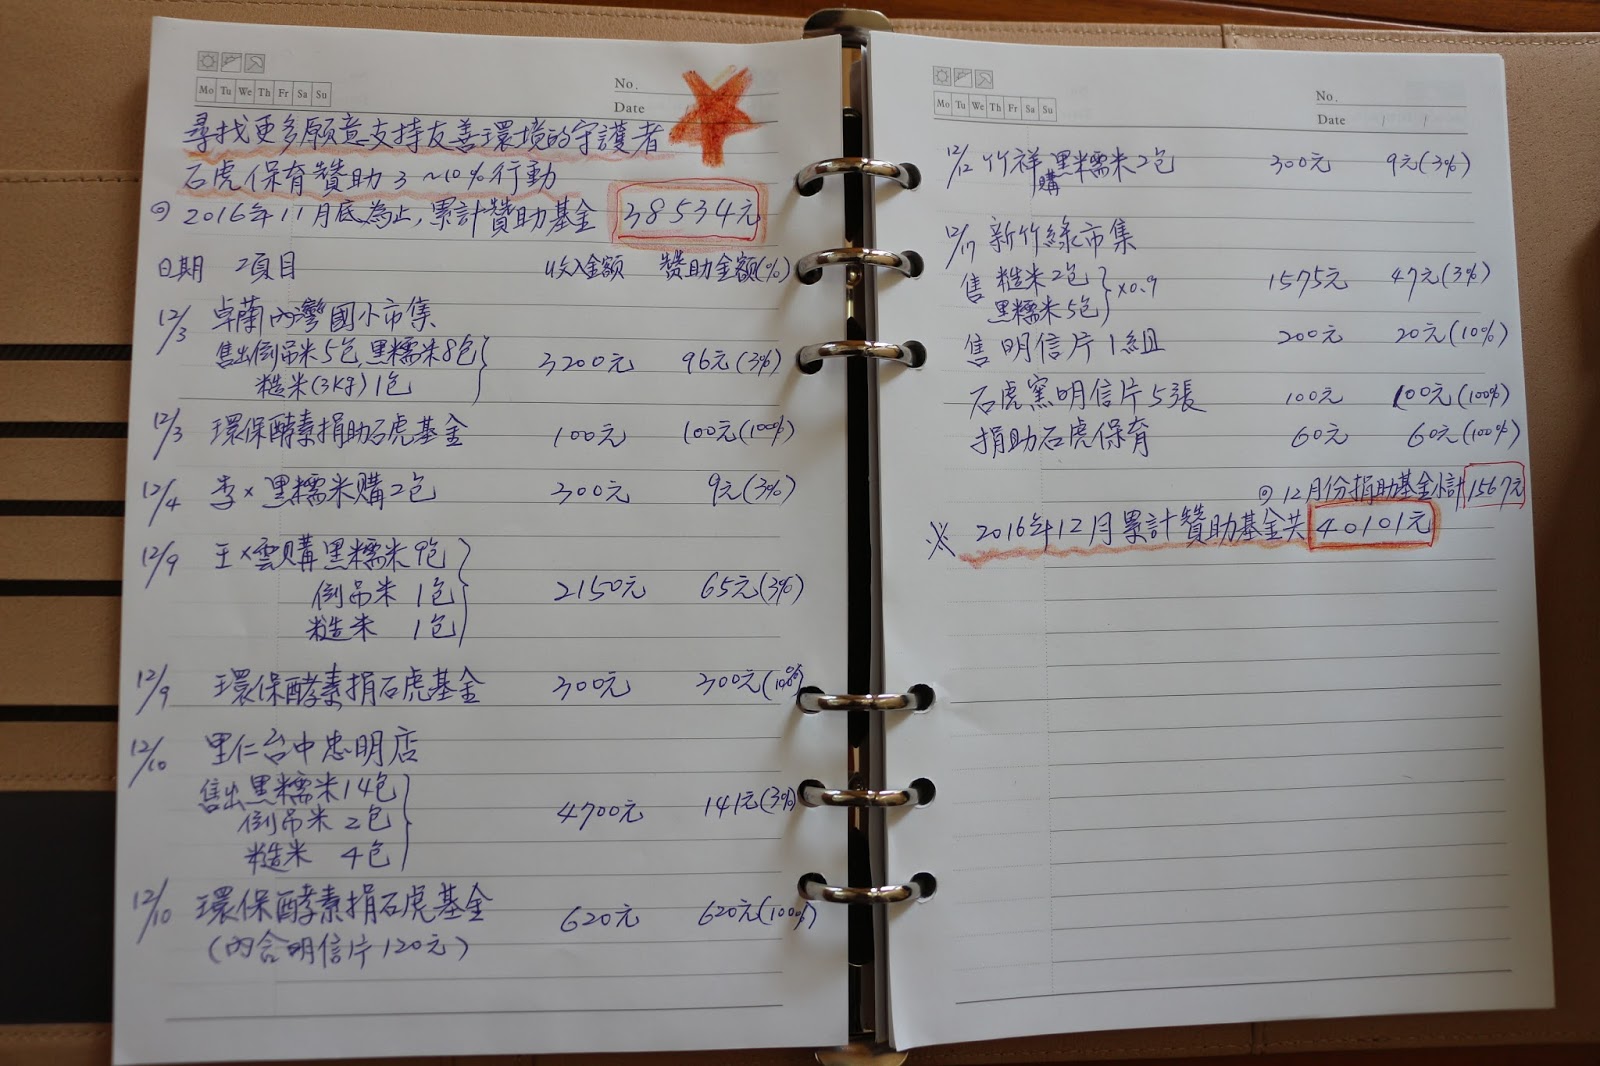 Mo Tu We Th Fr Sa Su
No.
Date
尋找更多願意支持友善環境的守護者
石虎保育贊助3~10%行動
◎2016年11月底為止,累計贊助基金 38534元
日期 項目 收入金額 贊助金額(%)
12/3 卓蘭內灣國小市集
售出倒吊米5包,黑糯米8包
糙米(3Kg)1包 3200元 96元(3%)
12/3 環保酵素捐助石虎基金 100元 100元(100%)
12/4 李×黑糯米購2包 300元 9元(3%)
12/9 王×雲購黑糯米9包
倒吊米 1包 2150元 65元(3%)
糙米 1包
12/9 環保酵素捐石虎基金 300元 300元(100%)
12/10 里仁台中忠明店
售出黑糯米14包
倒吊米 2包 4700元 141元(3%)
糙米 4包
12/10 環保酵素捐石虎基金 620元 620元(100%)
(內含明信片120元)
Mo Tu We Th Fr Sa Su
No.
Date / /
12/12 竹祥購黑糯米2包 300元 9元(3%)
12/17 新竹綠市集
售 糙米2包
黑糯米5包 ×0.9 1575元 47元(3%)
售明信片1組 200元 20元(10%)
石虎窯明信片5張 100元 100元(100%)
捐助石虎保育 60元 60元(100%)
◎12月份捐助基金小計 1567元
※ 2016年12月累計贊助基金共 40101元